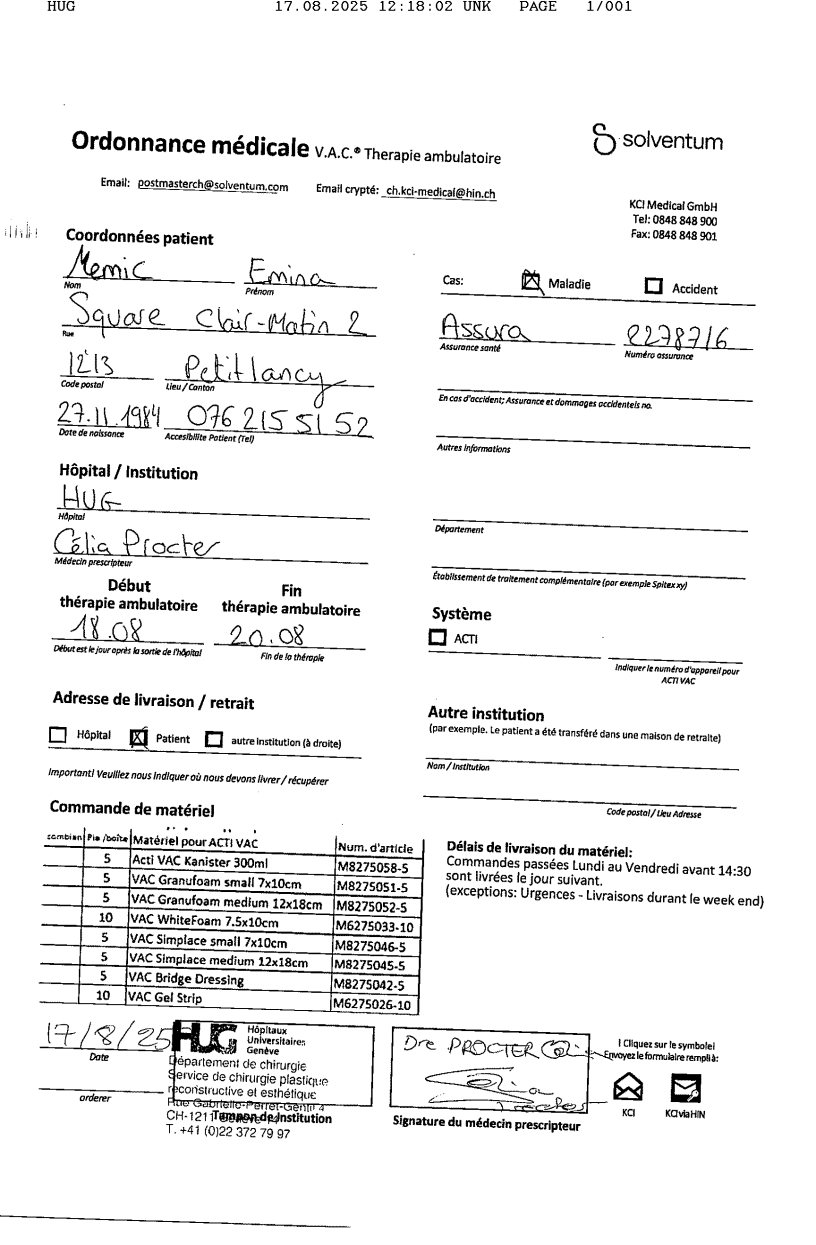 HUG 17.08.2025 12:18:02 UNK PAGE 1/001
Ordonnance médicale V.A.C.® Therapie ambulatoire
solventum
Email: postmasterch@solventum.com Email crypté: ch.kci-medical@hin.ch
KCI Medical GmbH
Tel: 0848 848 900
Fax: 0848 848 901
Coordonnées patient
Memic Emina
Nom Prénom
Square Clair-Matin 2
Rue
1213 Petit lancy
Code postal Lieu / Canton
27.11.1984 076 215 51 52
Date de naissance Accesibilite Patient (Tel)
Cas: Maladie Accident
Assura 2278716
Assurance santé Numéro assurance
En cas d'accident; Assurance et dommages accidentels no.
Autres informations
Hôpital / Institution
HUG
Hôpital
Célia Procter
Médecin prescripteur
Département
Établissement de traitement complémentaire (par exemple Spitex xy)
Début Fin
thérapie ambulatoire thérapie ambulatoire
18.08 20.08
Début est le jour après la sortie de l'hôpital Fin de la thérapie
Système
ACTI
Indiquer le numéro d'appareil pour
ACTI VAC
Adresse de livraison / retrait
Hôpital Patient autre institution (à droite)
Important! Veuillez nous indiquer où nous devons livrer / récupérer
Autre institution
(par exemple. Le patient a été transféré dans une maison de retraite)
Nom / Institution
Code postal / Lieu Adresse
Commande de matériel
combien Pie /boîte Matériel pour ACTI VAC Num. d'article
5 Acti VAC Kanister 300ml M8275058-5
5 VAC Granufoam small 7x10cm M8275051-5
5 VAC Granufoam medium 12x18cm M8275052-5
10 VAC WhiteFoam 7.5x10cm M6275033-10
5 VAC Simplace small 7x10cm M8275046-5
5 VAC Simplace medium 12x18cm M8275045-5
5 VAC Bridge Dressing M8275042-5
10 VAC Gel Strip M6275026-10
Délais de livraison du matériel:
Commandes passées Lundi au Vendredi avant 14:30
sont livrées le jour suivant.
(exceptions: Urgences - Livraisons durant le week end)
17/8/25
Date
orderer
HUG Hôpitaux
Universitaires
Genève
Département de chirurgie
Service de chirurgie plastique
reconstructive et esthétique
Rue Gabrielle-Perret-Gentil 4
CH-1211
Tampon de Institution
T. +41 (0)22 372 79 97
Dre PROCTER Célia
Signature du médecin prescripteur
! Cliquez sur le symbole!
Envoyez le formulaire rempli à:
KCI KCI via HIN